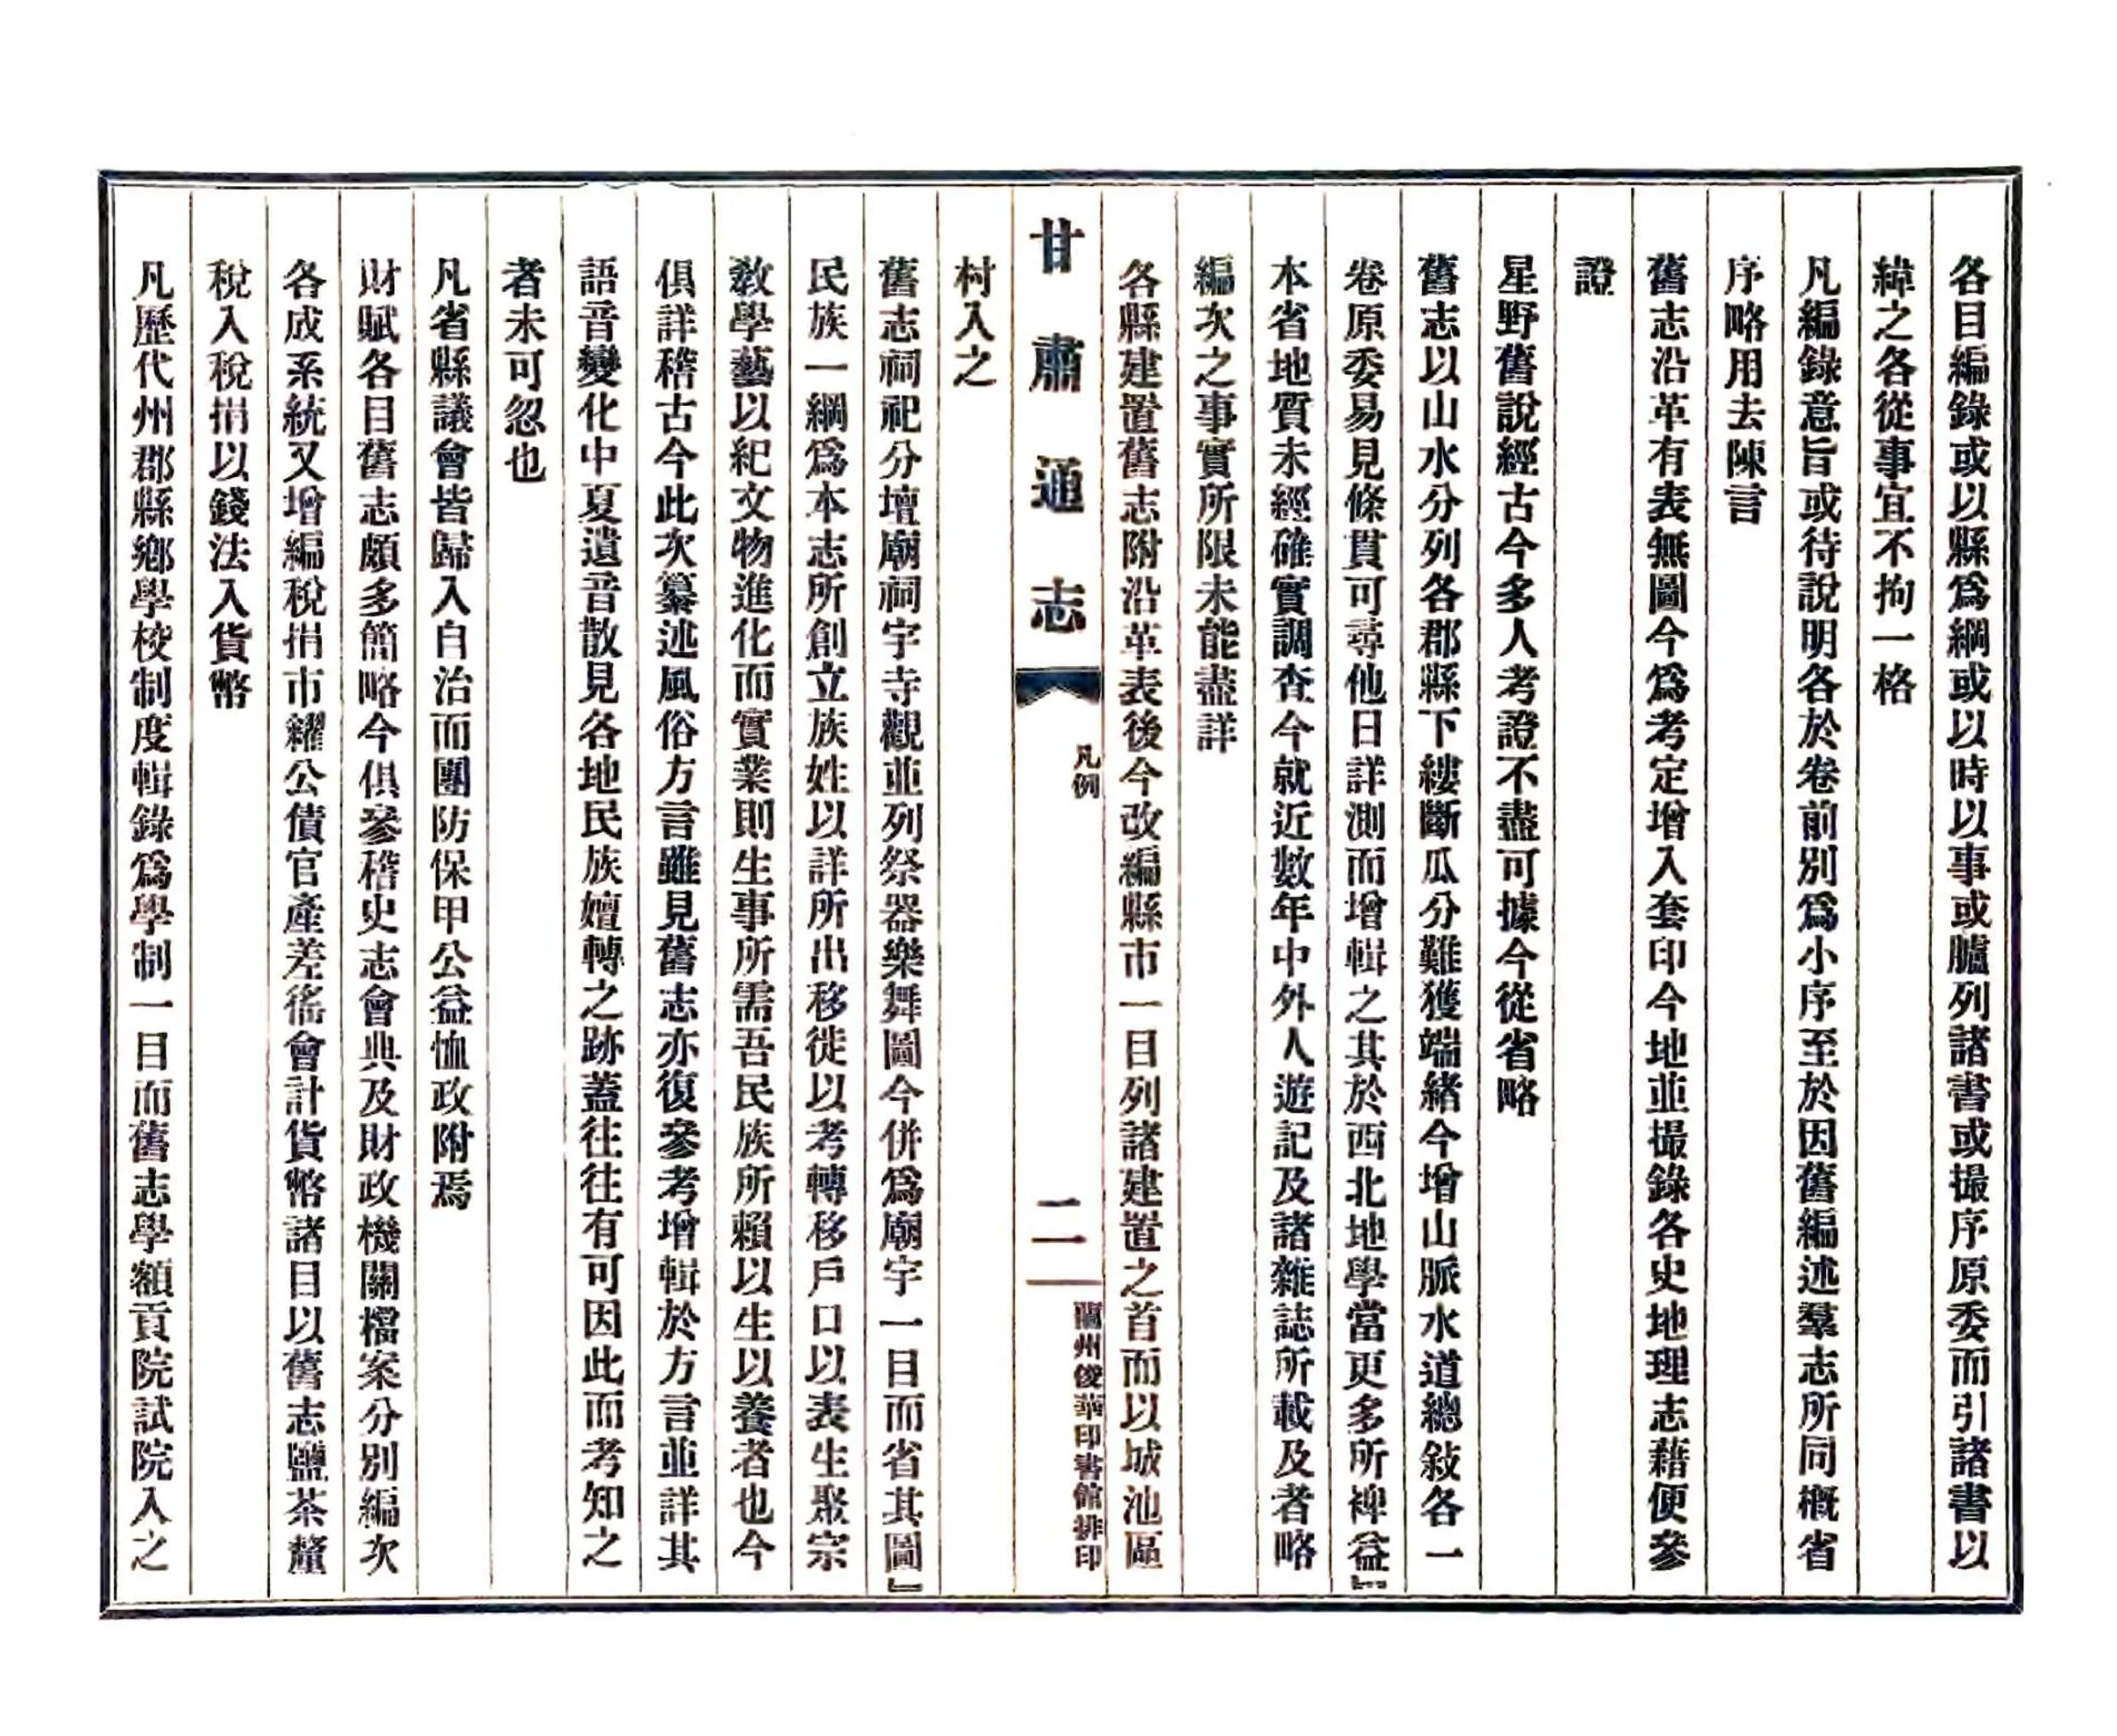 各目編錄或以縣爲綱或以時以事或臚列諸書或撮序原委而引諸書以
緯之各從事宜不拘一格
凡編錄意旨或待說明各於卷前別爲小序至於因舊編述羣志所同槪省
序略用去陳言
舊志沿革有表無圖今爲考定增入套印今地並撮錄各史地理志藉便參
證
星野舊說經古今多人考證不盡可據今從省略
舊志以山水分列各郡縣下縷斷瓜分難獲端緒今增山脈水道總敍各一
卷原委易見條貫可尋他日詳測而增輯之其於西北地學當更多所裨益」
本省地質未經確實調查今就近數年中外人遊記及諸雜誌所載及者略
編次之事實所限未能盡詳
各縣建置舊志附沿革表後今改編縣市一目列諸建置之首而以城池區
甘肅通志
凡例
二
蘭州俊華印書館排印
村入之
舊志祠祀分壇廟祠宇寺觀並列祭器樂舞圖今併爲廟宇一目而省其圖」
民族一綱爲本志所創立族姓以詳所出移徙以考轉移戶口以表生聚宗
敎學藝以紀文物進化而實業則生事所需吾民族所賴以生以養者也今
俱詳稽古今此次纂述風俗方言雖見舊志亦復參考增輯於方言並詳其
語音變化中夏遺音散見各地民族嬗轉之跡蓋往往有可因此而考知之
者未可忽也
凡省縣議會皆歸入自治而團防保甲公益恤政附焉
財賦各目舊志頗多簡略今俱參稽史志會典及財政機關檔案分別編次
各成系統又增編稅捐市糴公債官產差徭會計貨幣諸目以舊志鹽茶釐
稅入稅捐以錢法入貨幣
凡歷代州郡縣鄉學校制度輯錄爲學制一目而舊志學額貢院試院入之